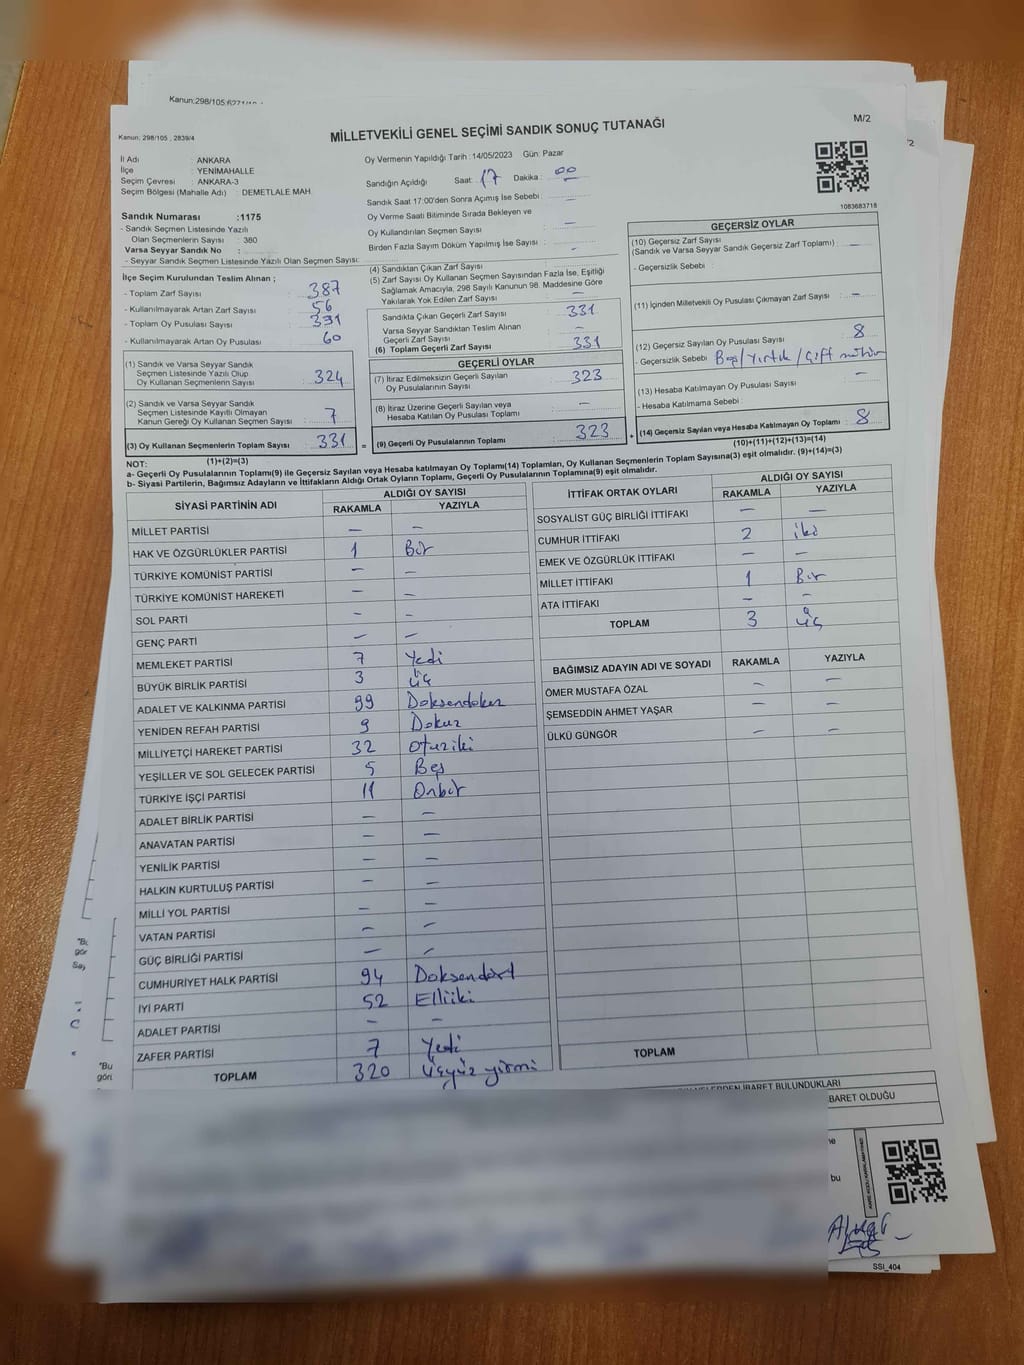 Kanun:298/105
Kanun: 298/105 , 2839/4
MİLLETVEKİLİ GENEL SEÇİMİ SANDIK SONUÇ TUTANAĞI
M/2
İl Adı : ANKARA
İlçe : YENİMAHALLE
Seçim Çevresi : ANKARA-3
Seçim Bölgesi (Mahalle Adı) : DEMETLALE MAH.
Oy Vermenin Yapıldığı Tarih :14/05/2023 Gün: Pazar
Sandığın Açıldığı Saat: 17 Dakika: 00
Sandık Saat 17:00'den Sonra Açımış İse Sebebi : –
Oy Verme Saati Bitiminde Sırada Bekleyen ve
Oy Kullandırılan Seçmen Sayısı : –
Birden Fazla Sayım Döküm Yapılmış İse Sayısı : –
1083683718
Sandık Numarası :1175
- Sandık Seçmen Listesinde Yazılı
Olan Seçmenlerin Sayısı : 380
Varsa Seyyar Sandık No :
- Seyyar Sandık Seçmen Listesinde Yazılı Olan Seçmen Sayısı:
İlçe Seçim Kurulundan Teslim Alınan ;
- Toplam Zarf Sayısı : 387
- Kullanılmayarak Artan Zarf Sayısı : 56
- Toplam Oy Pusulası Sayısı : 391
- Kullanılmayarak Artan Oy Pusulası : 60
(1) Sandık ve Varsa Seyyar Sandık
Seçmen Listesinde Yazılı Olup
Oy Kullanan Seçmenlerin Sayısı : 324
(2) Sandık ve Varsa Seyyar Sandık
Seçmen Listesinde Kayıtlı Olmayan
Kanun Gereği Oy Kullanan Seçmen Sayısı : 7
(3) Oy Kullanan Seçmenlerin Toplam Sayısı : 331 =
(1)+(2)=(3)
(4) Sandıktan Çıkan Zarf Sayısı : –
(5) Zarf Sayısı Oy Kullanan Seçmen Sayısından Fazla İse, Eşitliği
Sağlamak Amacıyla, 298 Sayılı Kanunun 98. Maddesine Göre
Yakılarak Yok Edilen Zarf Sayısı : –
Sandıkta Çıkan Geçerli Zarf Sayısı : 331
Varsa Seyyar Sandıktan Teslim Alınan
Geçerli Zarf Sayısı : –
(6) Toplam Geçerli Zarf Sayısı : 331
GEÇERLİ OYLAR
(7) İtiraz Edilmeksizin Geçerli Sayılan
Oy Pusulalarının Sayısı : 323
(8) İtiraz Üzerine Geçerli Sayılan veya
Hesaba Katılan Oy Pusulası Toplamı : –
(9) Geçerli Oy Pusulalarının Toplamı : 323 +
GEÇERSİZ OYLAR
(10) Geçersiz Zarf Sayısı
(Sandık ve Varsa Seyyar Sandık Geçersiz Zarf Toplamı) : –
- Geçersizlik Sebebi :
(11) İçinden Milletvekili Oy Pusulası Çıkmayan Zarf Sayısı : –
(12) Geçersiz Sayılan Oy Pusulası Sayısı : 8
- Geçersizlik Sebebi : Boş/Yırtık/Çift mühür
(13) Hesaba Katılmayan Oy Pusulası Sayısı : –
- Hesaba Katılmama Sebebi :
(14) Geçersiz Sayılan veya Hesaba Katılmayan Oy Toplamı : 8
(10)+(11)+(12)+(13)=(14)
NOT:
a- Geçerli Oy Pusulalarının Toplamı(9) ile Geçersiz Sayılan veya Hesaba katılmayan Oy Toplamı(14) Toplamları, Oy Kullanan Seçmenlerin Toplam Sayısına(3) eşit olmalıdır. (9)+(14)=(3)
b- Siyasi Partilerin, Bağımsız Adayların ve İttifakların Aldığı Ortak Oyların Toplamı, Geçerli Oy Pusulalarının Toplamına(9) eşit olmalıdır.
SİYASİ PARTİNİN ADI
ALDIĞI OY SAYISI
RAKAMLA YAZIYLA
MİLLET PARTİSİ – –
HAK VE ÖZGÜRLÜKLER PARTİSİ 1 Bir
TÜRKİYE KOMÜNİST PARTİSİ – –
TÜRKİYE KOMÜNİST HAREKETİ – –
SOL PARTİ – –
GENÇ PARTİ – –
MEMLEKET PARTİSİ 7 Yedi
BÜYÜK BİRLİK PARTİSİ 3 üç
ADALET VE KALKINMA PARTİSİ 99 Doksandokuz
YENİDEN REFAH PARTİSİ 9 Dokuz
MİLLİYETÇİ HAREKET PARTİSİ 32 Otuziki
YEŞİLLER VE SOL GELECEK PARTİSİ 5 Beş
TÜRKİYE İŞÇİ PARTİSİ 11 Onbir
ADALET BİRLİK PARTİSİ – –
ANAVATAN PARTİSİ – –
YENİLİK PARTİSİ – –
HALKIN KURTULUŞ PARTİSİ – –
MİLLİ YOL PARTİSİ – –
VATAN PARTİSİ – –
GÜÇ BİRLİĞİ PARTİSİ – –
CUMHURİYET HALK PARTİSİ 94 Doksandört
İYİ PARTİ 52 Elliiki
ADALET PARTİSİ – –
ZAFER PARTİSİ 7 Yedi
TOPLAM 320 Üçyüz yirmi
İTTİFAK ORTAK OYLARI
ALDIĞI OY SAYISI
RAKAMLA YAZIYLA
SOSYALİST GÜÇ BİRLİĞİ İTTİFAKI – –
CUMHUR İTTİFAKI 2 iki
EMEK VE ÖZGÜRLÜK İTTİFAKI – –
MİLLET İTTİFAKI 1 Bir
ATA İTTİFAKI – –
TOPLAM 3 üç
BAĞIMSIZ ADAYIN ADI VE SOYADI RAKAMLA YAZIYLA
ÖMER MUSTAFA ÖZAL – –
ŞEMSEDDİN AHMET YAŞAR – –
ÜLKÜ GÜNGÖR – –
TOPLAM
İBARET BULUNDUKLARI
BARET OLDUĞU
bu
SSI_404